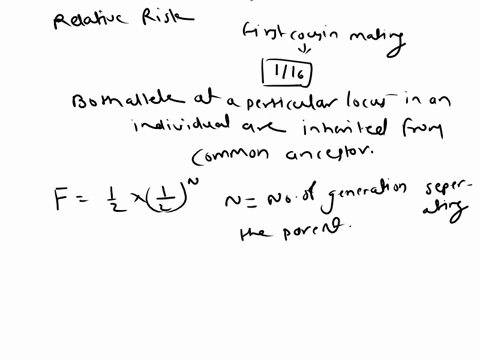 Relative Risk
First cousin mating
↓
1/16
Both allele at a particular locus in an
individual are inherited from
common ancestor.
F = 1/2 × (1/2)^N N = No. of generation seper-
ating
the parent.